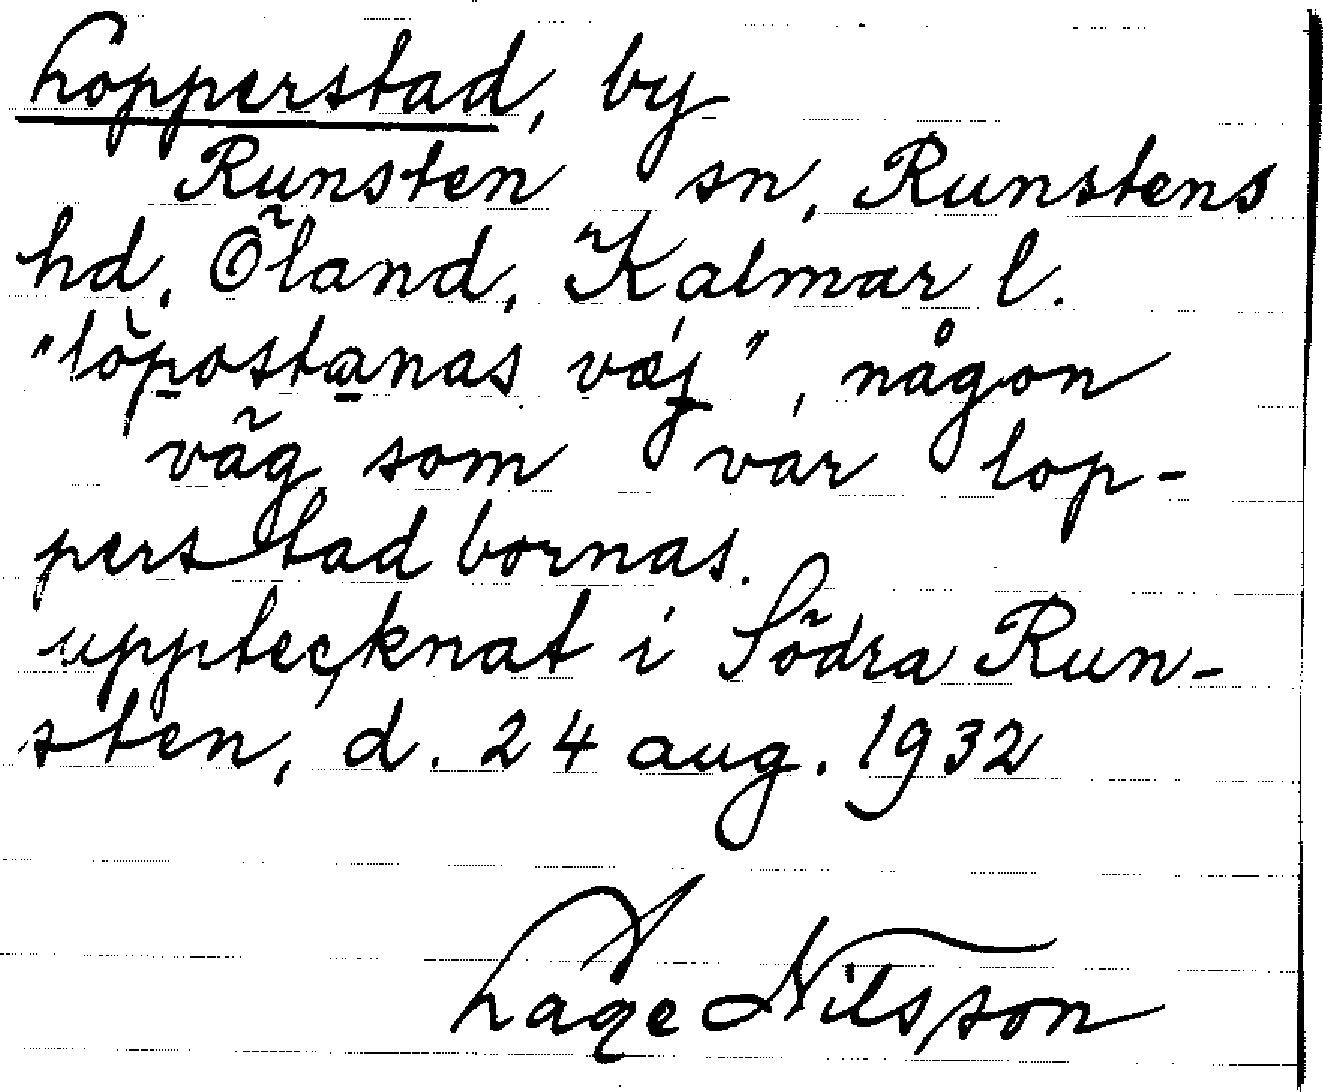 Lopperstad, by
Runsten sn, Runstens
hd, Öland, Kalmar l.
"lòpostanas væ̀j", någon
väg som var lop-
perstadbornas.
upptecknat i Södra Run-
sten, d. 24 aug. 1932
Lage Nilsson